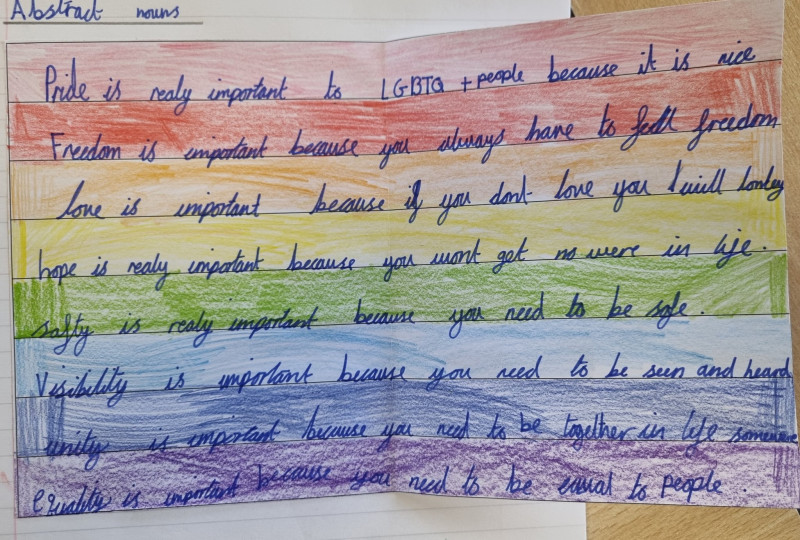 Abstract nouns
Pride is realy important to LGBTQ + people because it is nice
Freedom is important because you always have to fell freedom
love is important because if you dont love you will lonley
hope is realy important because you wont get no were in life.
safty is realy important because you need to be safe.
Visibility is important because you need to be seen and heard
unity is important because you need to be together in life
equality is important because you need to be equal to people.